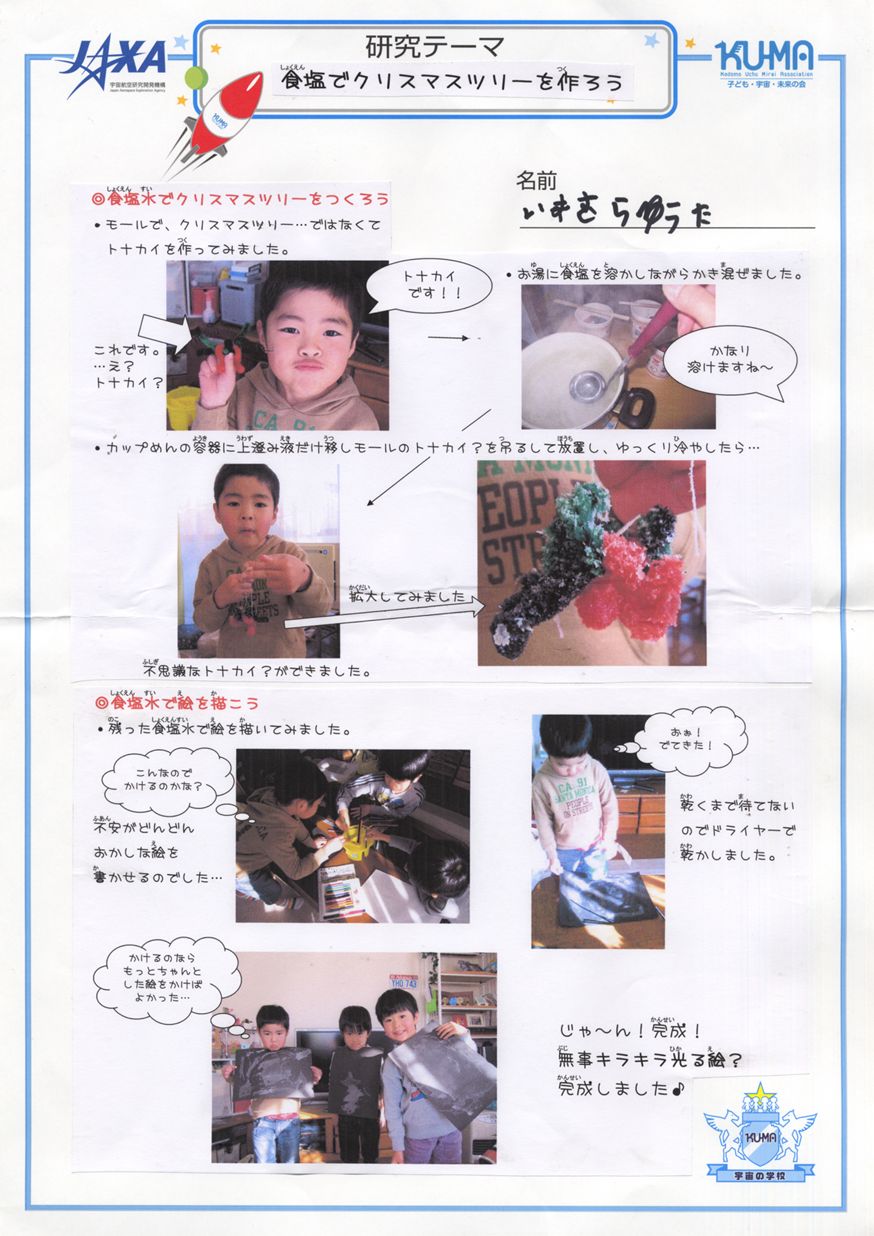 JAXA
宇宙航空研究開発機構
Japan Aerospace Exploration Agency
研究テーマ
食塩でクリスマスツリーを作ろう
KU-MA
Kodomo Uchu Mirai Association
子ども・宇宙・未来の会
KU-MA
名前
ゆうた
◎食塩水でクリスマスツリーをつくろう
・モールで、クリスマスツリー…ではなくて
トナカイを作ってみました。
トナカイ
です！！
これです。
…え？
トナカイ？
・お湯に食塩を溶かしながらかき混ぜました。
かなり
溶けますね～
・カップめんの容器に上澄み液だけ移しモールのトナカイ？を吊るして放置し、ゆっくり冷やしたら…
拡大してみました
不思議なトナカイ？ができました。
◎食塩水で絵を描こう
・残った食塩水で絵を描いてみました。
こんなので
かけるのかな？
不安がどんどん
おかしな絵を
書かせるのでした…
おぉ！
でてきた！
乾くまで待てない
のでドライヤーで
乾かしました。
かけるのなら
もっとちゃんと
した絵をかけば
よかった…
じゃ～ん！完成！
無事キラキラ光る絵？
完成しました♪
KU-MA
宇宙の学校